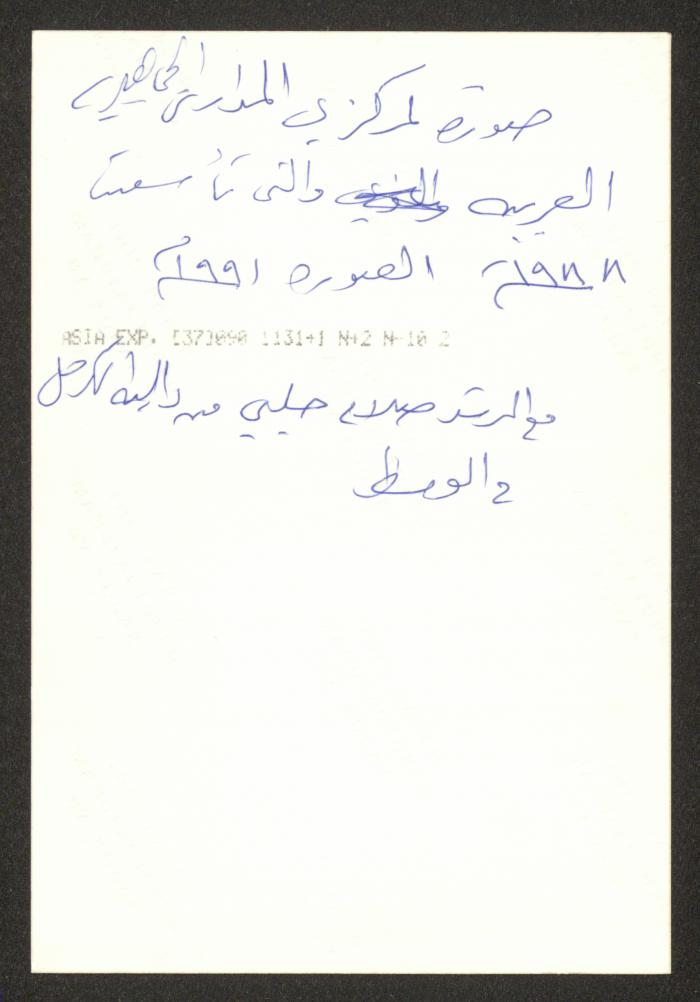 صورة لمركزي المدارس الجماهيرية
العربية والتي تأسست
١٩٨٨ الصورة ١٩٩١م
ASIA EXP. [37]090 1131+1 N+2 N-10 2
مع المرشد صلاح حلبي من دالية الكرمل
في الوسط